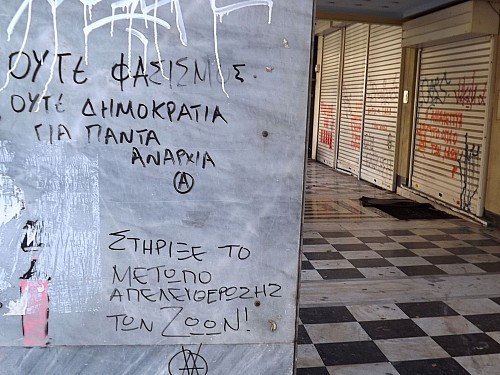 ΟΥΤΕ ΦΑΣΙΣΜΟς
ΟΥΤΕ ΔΗΜΟΚΡΑΤΙΑ
ΓΙΑ ΠΑΝΤΑ
ΑΝΑΡΧΙΑ
Α
ΣΤΗΡΙΞΕ ΤΟ
ΜΕΤΩΠΟ
ΑΠΕΛΕΥΘΕΡΩΣΗΣ
ΤΩΝ ΖΩΩΝ!